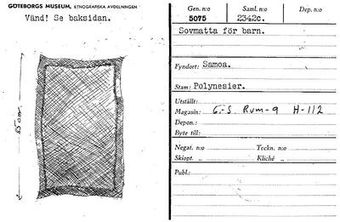 GÖTEBORGS MUSEUM, ETNOGRAFISKA AVDELNINGEN
Vänd! Se baksidan.
Gen. n:o
5075
Saml. n:o
2342c.
Dep. n:o
Sovmatta för barn.
Fyndort: Samoa.
Stam: Polynesier.
Utställt:
Magasin: G-S Rum-9 H-112
Depon.:
Byte till:
Negat. n:o
Teckn. n:o
Skiopt.
Kliché
Publ.: